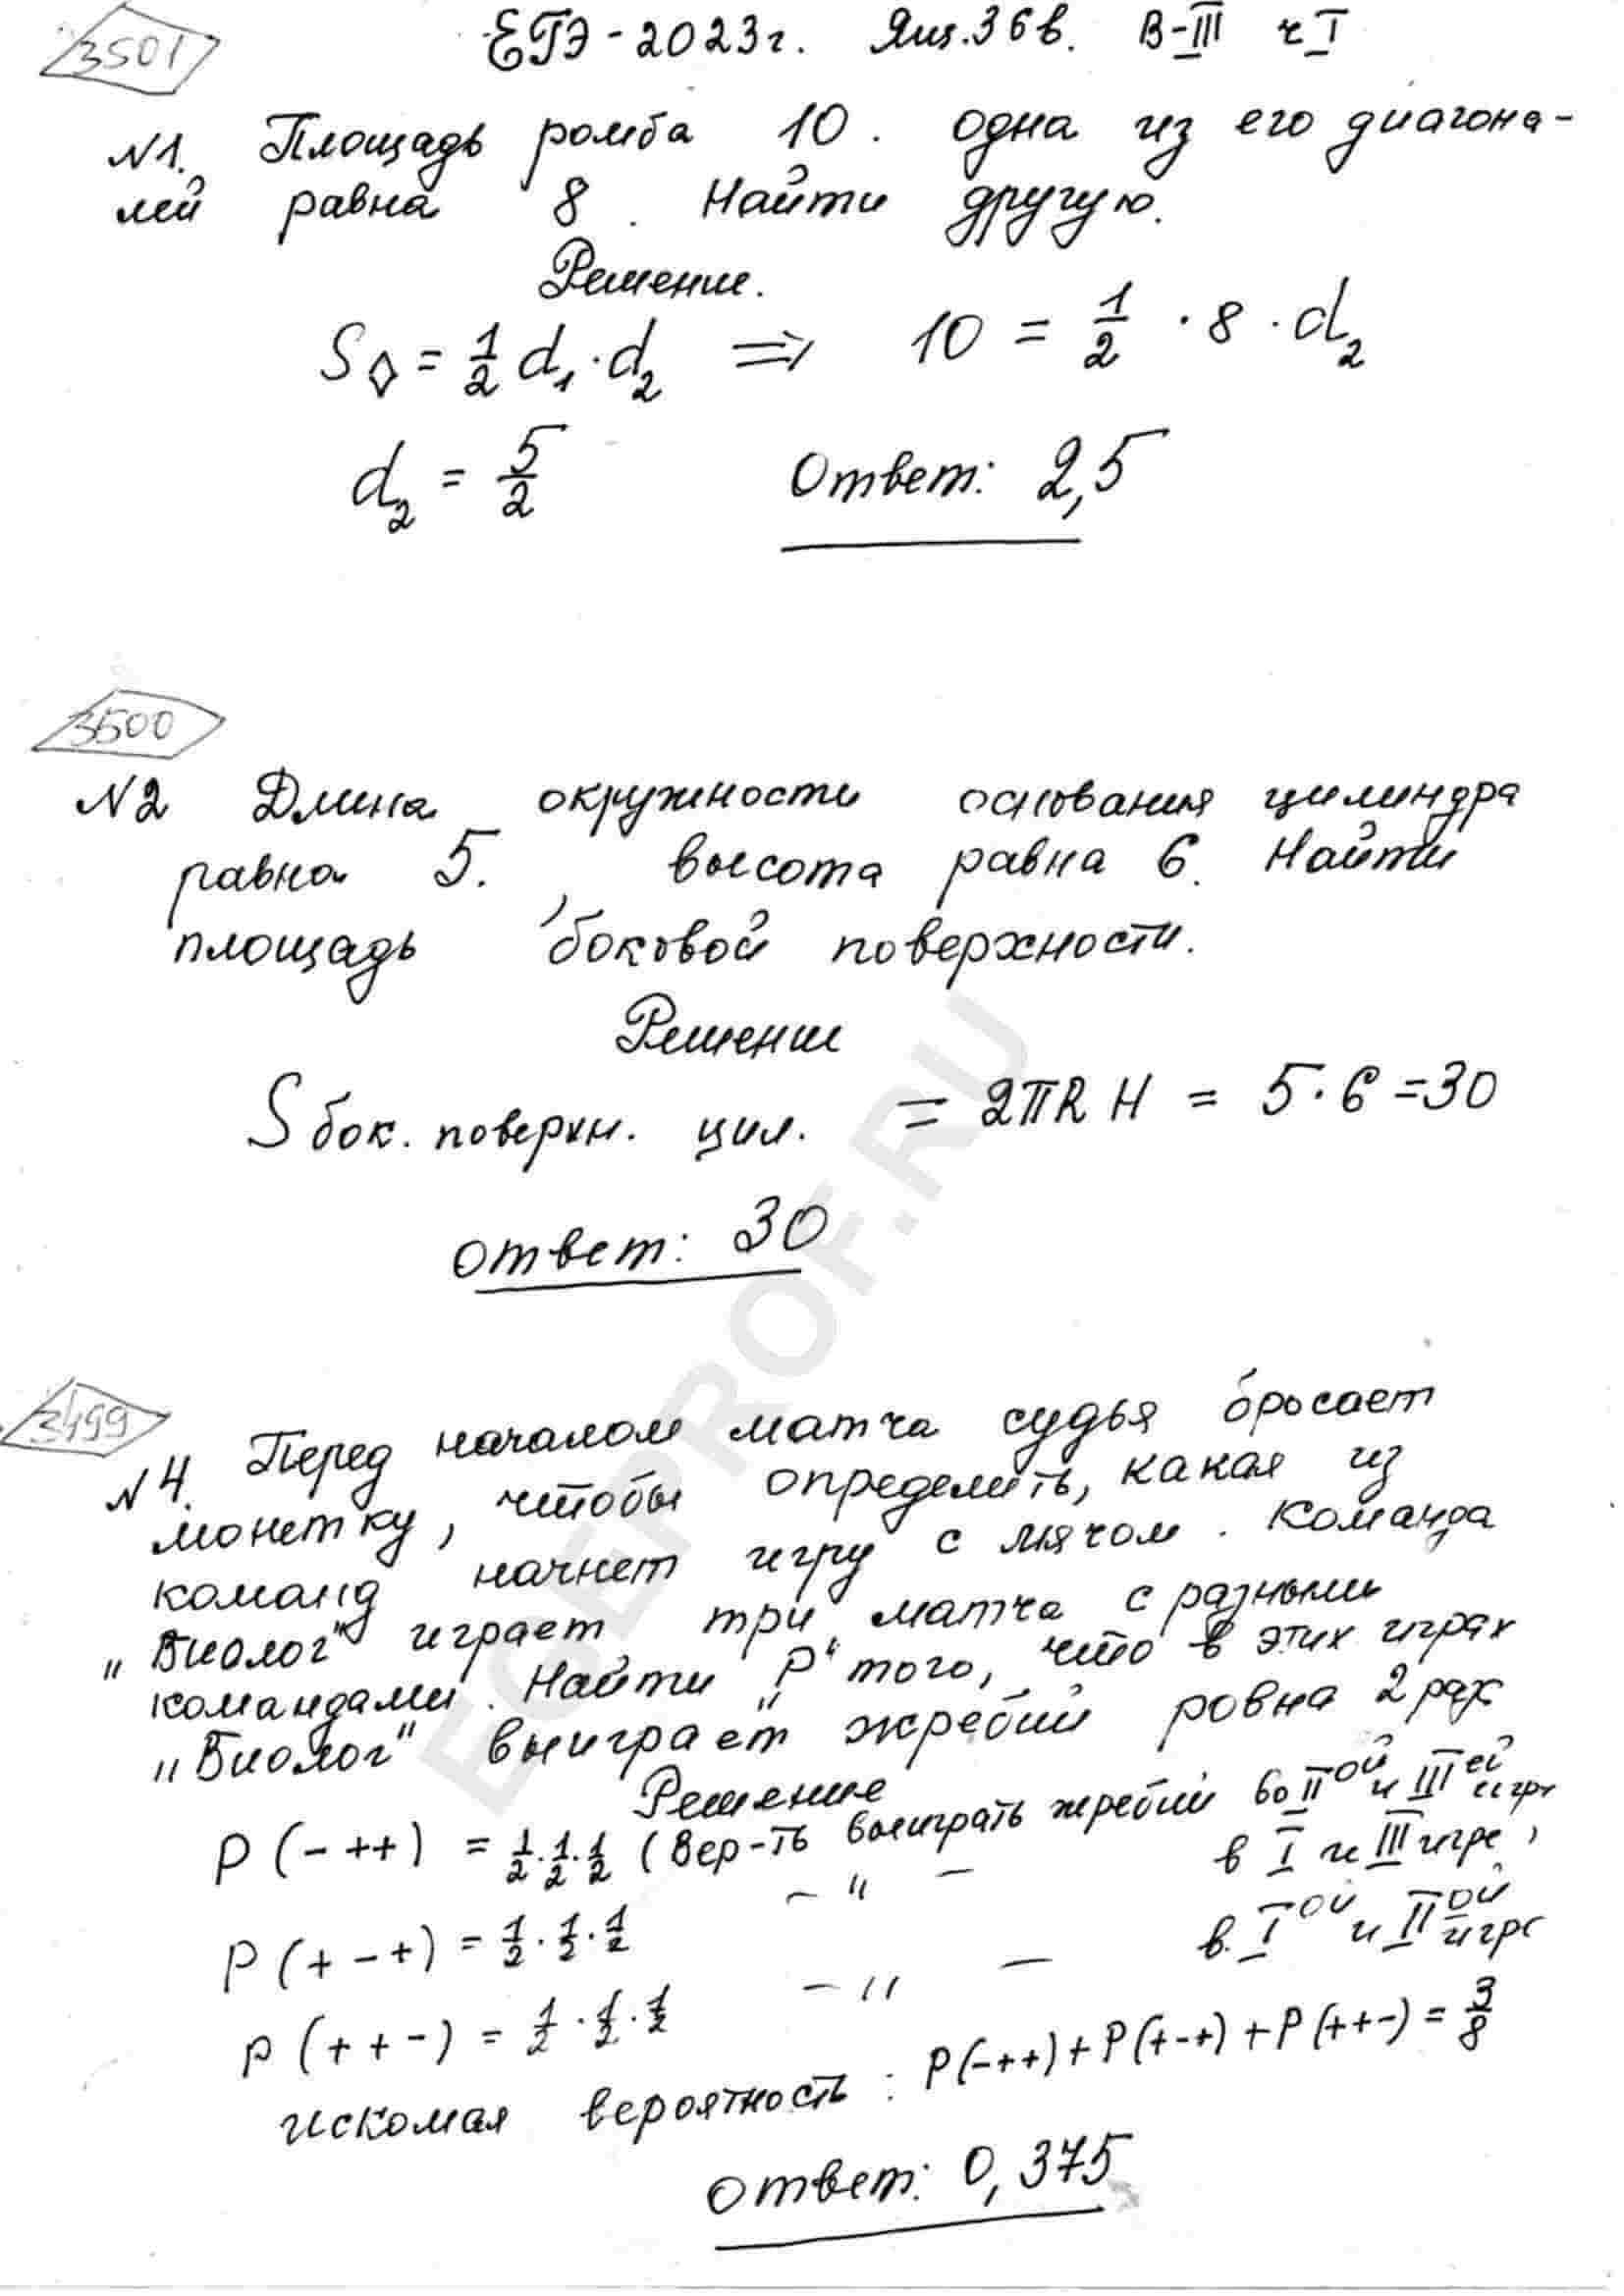 3501
ЕГЭ-2023г. Ящ.36в. В-III ч I
N1. Площадь ромба 10. одна из его диагона-
лей равна 8. Найти другую.
Решение.
S◊ = 1/2 d₁·d₂ => 10 = 1/2 · 8 · d₂
d₂ = 5/2 Ответ: 2,5
3500
N2 Длина окружности основания цилиндра
равна 5., высота равна 6. Найти
площадь боковой поверхности.
Решение
S бок. поверхн. цил. = 2πR H = 5·6 = 30
ответ: 30
3499
N4. Перед началом матча судья бросает
монетку, чтобы определить, какая из
команд начнет игру с мячом. Команда
"Биолог" играет три матча с разными
командами. Найти "P" того, что в этих играх
"Биолог" выиграет жребий ровна 2 раз
Решение
P(-++) = 1/2·1/2·1/2 (Вер-ть выиграть жребий во II ой и III ей игре
P(+-+) = 1/2·1/2·1/2 - " - в I и III игре,
P(++-) = 1/2·1/2·1/2 - " - в. I ой и II ой игре
искомая вероятность: P(-++)+P(+-+)+P(++-) = 3/8
ответ: 0,375
EGEPROF.RU